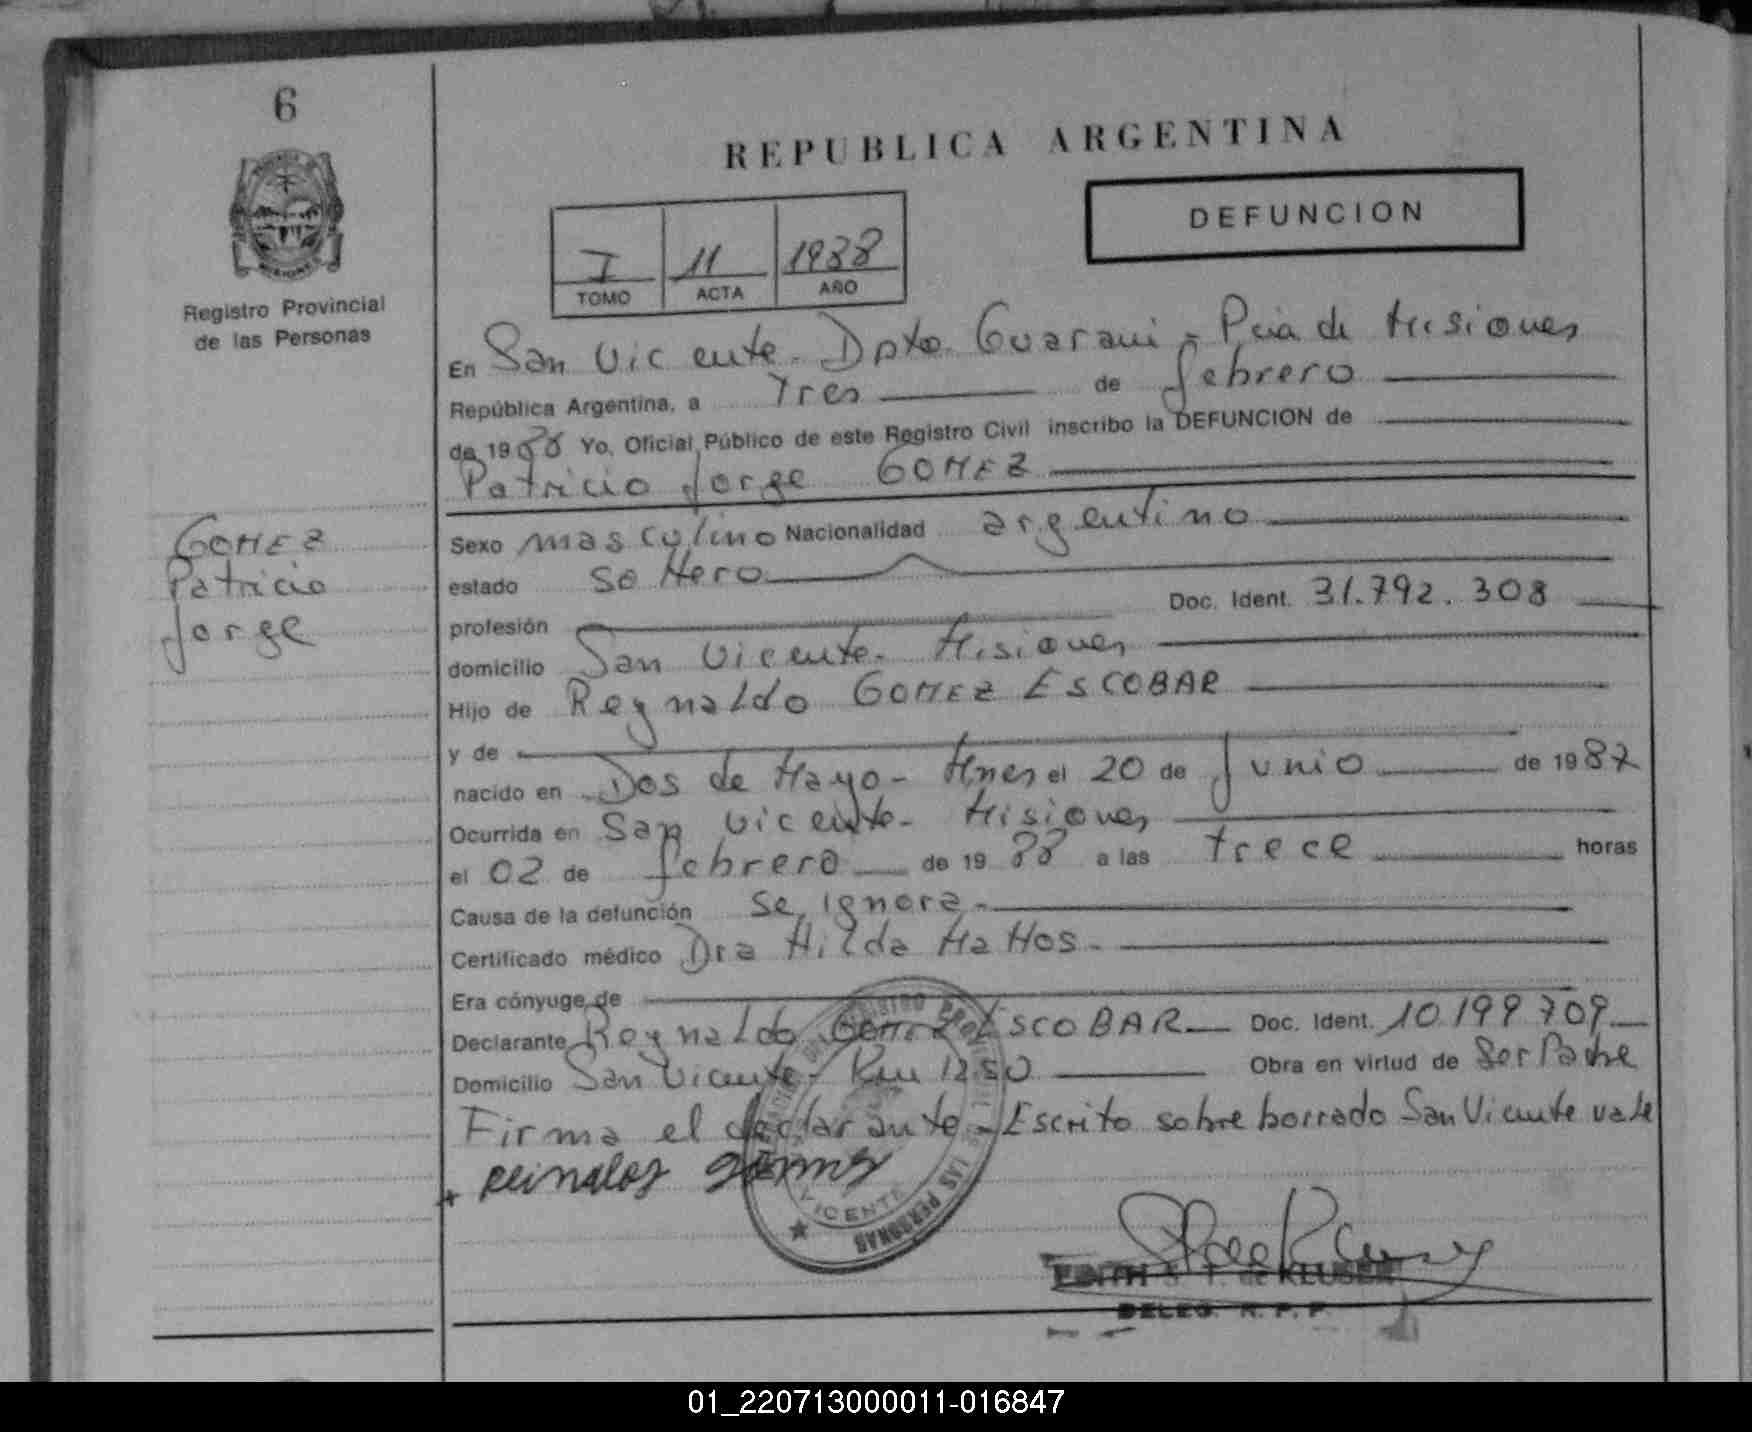 6
REPUBLICA ARGENTINA
DEFUNCION
I 11 1988
TOMO ACTA AÑO
Registro Provincial
de las Personas
En San Vicente - Dpto. Guarani - Pcia de Misiones
República Argentina, a Tres de febrero
de 1988 Yo, Oficial Público de este Registro Civil inscribo la DEFUNCION de
Patricio Jorge GOMEZ
GOMEZ
Patricio
Jorge
Sexo masculino Nacionalidad argentino
estado soltero
profesión Doc. Ident. 31.792.308
domicilio San Vicente - Misiones
Hijo de Reynaldo GOMEZ ESCOBAR
y de
nacido en Dos de Mayo - Mnes el 20 de Junio de 1987
Ocurrida en San Vicente - Misiones
el 02 de febrero de 1988 a las trece horas
Causa de la defunción se ignora -
Certificado médico Dra Hilda Mattos -
Era cónyuge de
Declarante Reynaldo Gomez ESCOBAR Doc. Ident. 10.199.709
Domicilio San Vicente - Km 1250 Obra en virtud de Ser Padre
Firma el declarante - Escrito sobre borrado San Vicente vale
+ Reinaldo gomez
VICENTE
LAS PERSONAS
EDITH S. T. de KLUSER
DELEG. R. P. P.
01_220713000011-016847